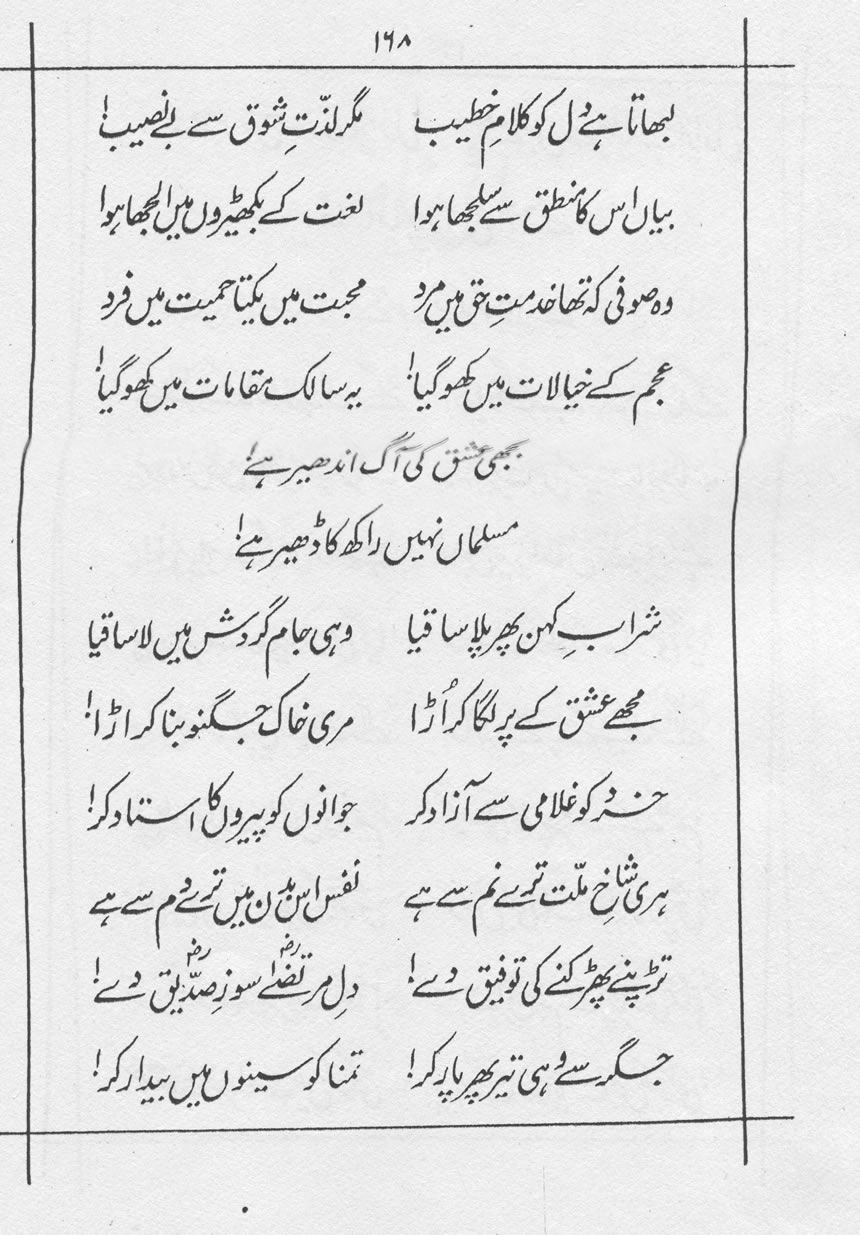 ۱۶۸
لبھاتا ہے دل کو کلامِ خطیب مگر لذّتِ شوق سے بے نصیب!
بیاں اس کا منطق سے سلجھا ہوا لغت کے بکھیڑوں میں الجھا ہوا
وہ صوفی کہ تھا خدمتِ حق میں مرد محبت میں یکتا حمیت میں فرد
عجم کے خیالات میں کھو گیا! یہ سالک مقامات میں کھو گیا!
بجھی عشق کی آگ اندھیر ہے!
مسلماں نہیں راکھ کا ڈھیر ہے!
شرابِ کہن پھر پلا ساقیا وہی جام گردش میں لا ساقیا
مجھے عشق کے پر لگا کر اُڑا مری خاک جگنو بنا کر اڑا!
خرد کو غلامی سے آزاد کر جوانوں کو پیروں کا استاد کر!
ہری شاخِ ملّت ترے نم سے ہے نفس اس بدن میں ترے دم سے ہے
تڑپنے پھڑکنے کی توفیق دے! دلِ مرتضٰےؓ سوزِ صدّیقؓ دے!
جگر سے وہی تیر پھر پار کر! تمنا کو سینوں میں بیدار کر!